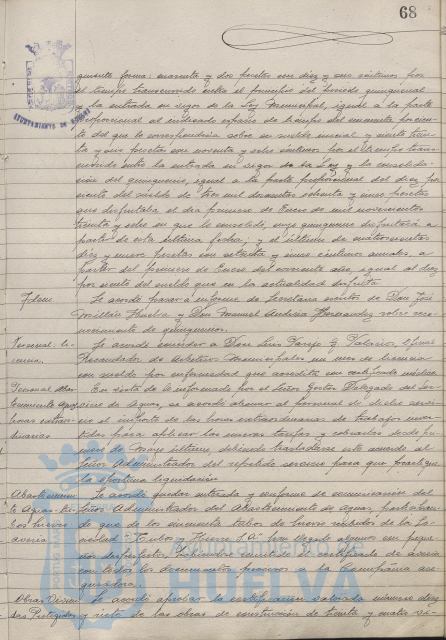 68
AYUNTAMIENTO DE HUELVA
guiente forma: cuarenta y dos pesetas con diez y seis céntimos por
el tiempo transcurrido entre el principio del periodo quinquenal
y la entrada en vigor de la Ley Municipal, igual a la parte
proporcional al indicado espacio de tiempo del cincuenta por cien
to del que le correspondería sobre su sueldo inicial y ciento trein
ta y seis pesetas con noventa y ocho céntimos por el tiempo trans-
currido entre la entrada en vigor de la Ley y la consolida-
ción del quinquenio, igual a la parte proporcional del diez por
ciento del sueldo de tres mil doscientas ochenta y cinco pesetas
que disfrutaba el día primero de Enero de mil novecientos
treinta y ocho en que lo consolidó, cuyo quinquenio disfrutará a
partir de esta última fecha; y el último de cuatrocientas
diez y nueve pesetas con setenta y cinco céntimos anuales, a
partir del primero de Enero del corriente año, igual al diez
por ciento del sueldo que en la actualidad disfruta.
Idem
Se acordó pasar a informe de Secretaría escritos de Don José
Millán Huelva y Don Manuel Hernández sobre reco-
nocimiento de quinquenios.
Personal. Li-
cencia.
Se acordó conceder a Don Luis Parejo y Palacios, Oficial
Recaudador de Arbitrios Municipales un mes de licencia
con sueldo por enfermedad que acredita con certificado médico.
En vista de lo informado por el Señor Gestor Delegado del Ser-
vicio de Aguas, se acordó abonar al personal de dicho servi-
horas extraor-
dinarias
cio el importe de las horas extraordinarias de trabajo inver-
tidas para aplicar las nuevas tarifas y cobrarlas desde pri-
mero de Mayo último, debiendo trasladarse este acuerdo al
Señor Administrador del repetido servicio para que practique
la oportuna liquidación
Abastecimiento
de Aguas. Tu-
bos hierro
avería
Se acordó quedar enterada y conforme de comunicación del
Señor Administrador del Abastecimiento de Aguas, participan-
do que de los cincuenta tubos de hierro recibidos de la So-
ciedad "Tubos y Hierros S.A." han llegado algunos con peque-
ños desperfectos, habiéndose remitido el certificado de avería
con todos los documentos precisos a la Compañía ase-
guradora.
Obras Vivien-
das Protegidas
Se acordó aprobar la certificación valorada número diez
y siete de las obras de construcción de treinta y cuatro vi-
HUELVA